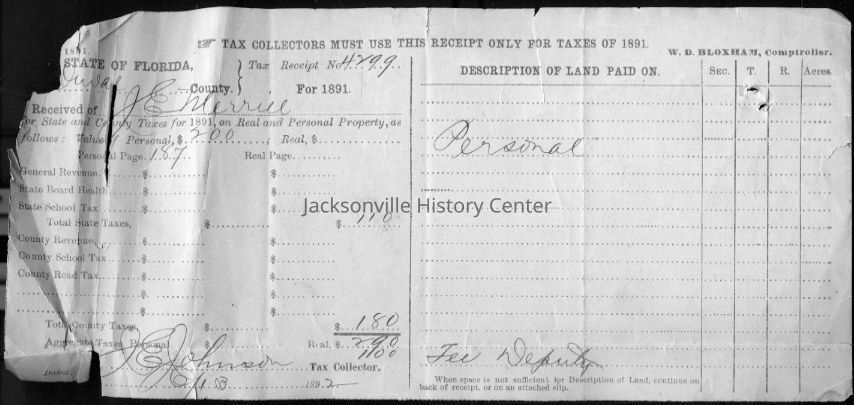 1891.
☞ TAX COLLECTORS MUST USE THIS RECEIPT ONLY FOR TAXES OF 1891.
W. D. BLOXHAM, Comptroller.
STATE OF FLORIDA, } Tax Receipt No 4299
Duval County. } For 1891.
Received of J E Merrill
for State and County Taxes for 1891, on Real and Personal Property, as
follows: Value of Personal, $ 200 ; Real, $
Personal Page 187 Real Page
General Revenue $ $
State Board Health $ $
State School Tax $ $
Total State Taxes, $ $ 110
County Revenue, $ $
County School Tax $ $
County Road Tax $ $
$ $
Total County Taxes, $ $ 1.80
Aggregate Taxes, Personal Real, $ 290
100
Johnson Tax Collector.
189 2
DESCRIPTION OF LAND PAID ON. SEC. T. R. Acres
Personal
Fee Deputy
When space is not sufficient for Description of Land, continue on
back of receipt, or on an attached slip.
Jacksonville History Center